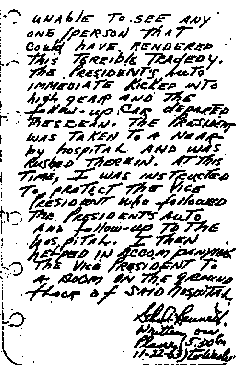 UNABLE TO SEE ANY
ONE PERSON THAT
COULD HAVE RENDERED
THIS TERRIBLE TRAGEDY.
THE PRESIDENT'S AUTO
IMMEDIATE KICKED INTO
high GEAR AND THE
FOLLOW-UP CAR DEPARTED
THE PRESIDENT
WAS TAKEN TO A NEAR
by HOSPITAL AND WAS
RUSHED THEREIN. AT THIS
TIME, I WAS INSTRUCTED
TO PROTECT THE VICE
PRESIDENT who followed
THE PRESIDENTS AUTO
AND follow-UP TO THE
HOSPITAL. I THEN
HELPED IN ACCOMPANYING
THE VICE PRESIDENT TO
A ROOM ON THE GROUND
FLOOR OF SAID HOSPITAL
Bennett
Written on
Plane 5:30
11-22-63